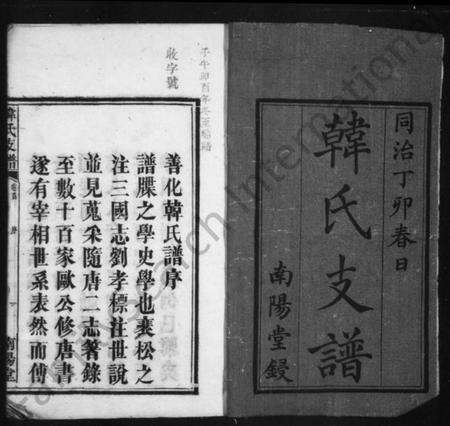 同治丁卯春日
韓氏支譜
南陽堂鋟
收字號
善化韓氏譜序
譜牒之學史學也裴松之
注三國志劉孝標注世說
並見蒐采隨唐二志箸錄
至數十百家歐公修唐書
遂有宰相世系表然而傳
韓氏支譜
序
南陽堂